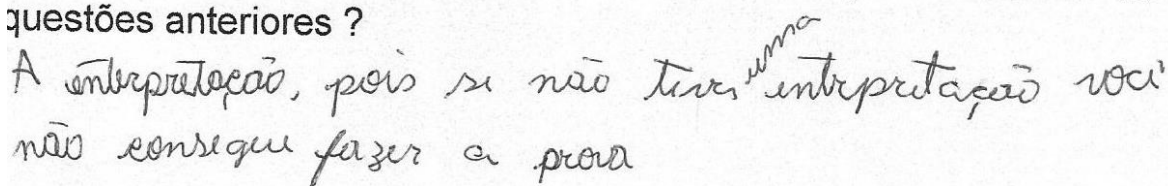 questões anteriores ?
A interpretação, pois se não tiver uma interpretação você
não consegue fazer a prova